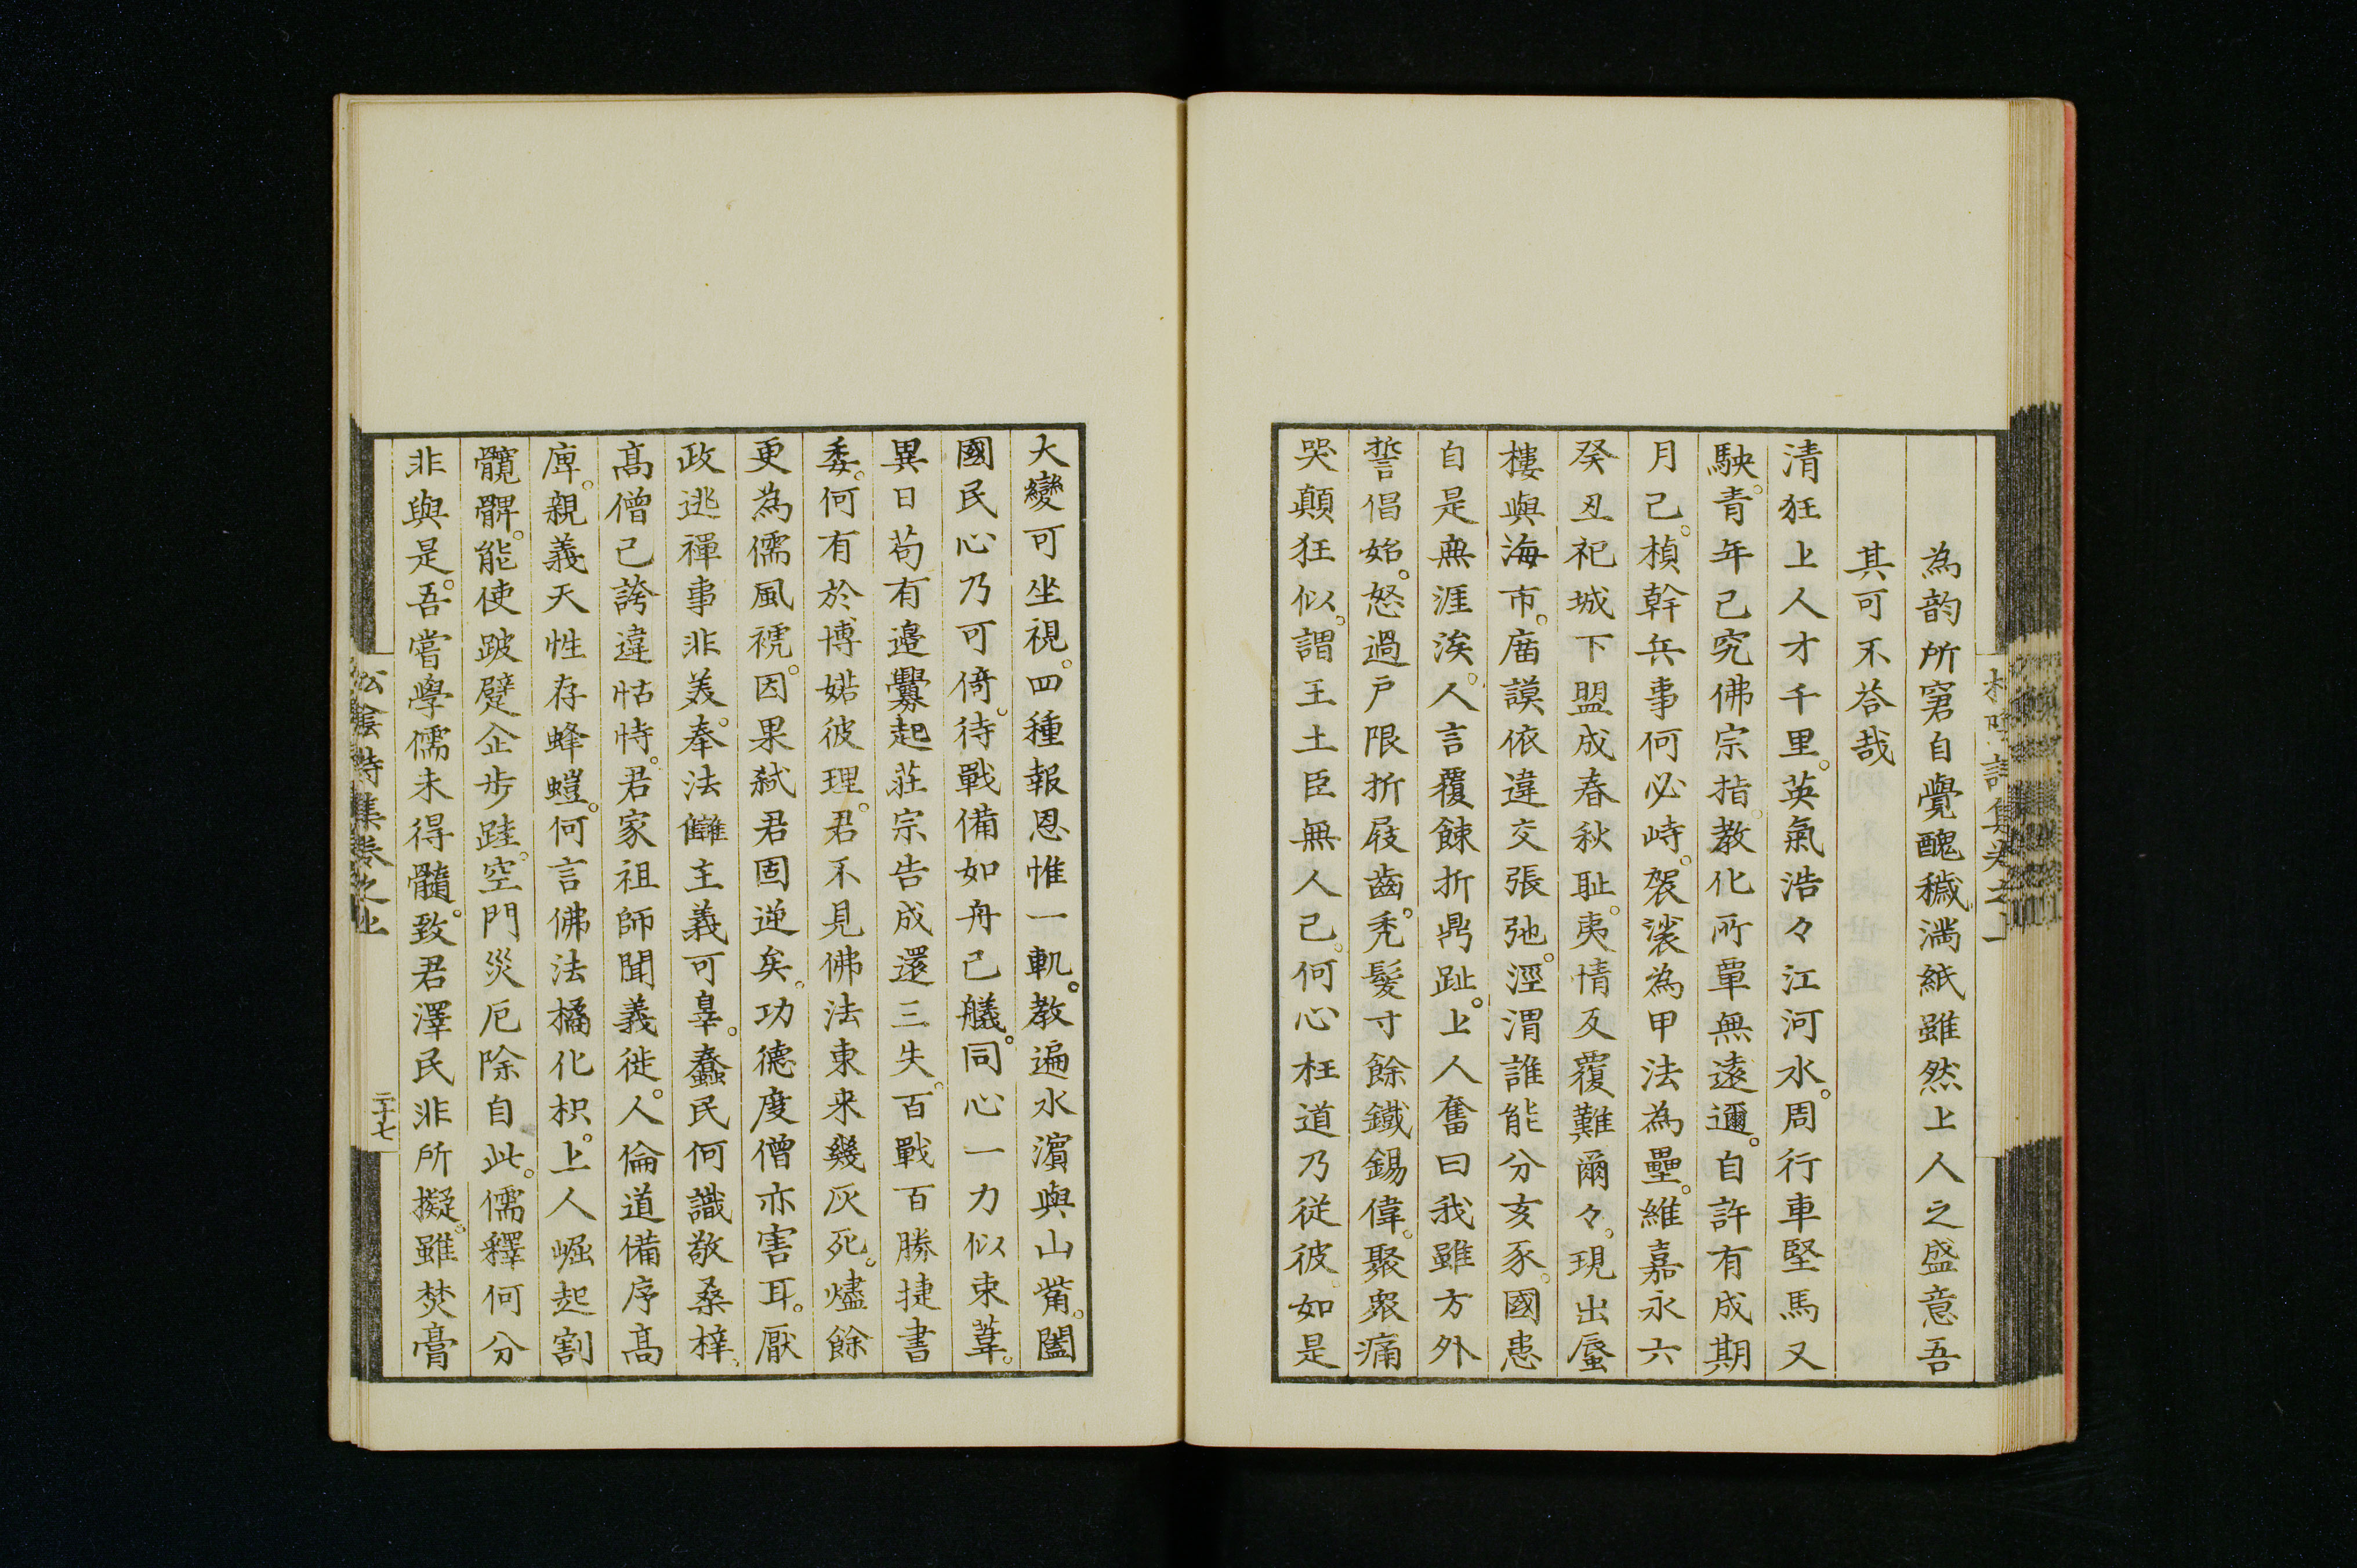 為韵所窘自覺醜穢満紙雖然上人之盛意吾
其可不荅哉
清狂上人才千里。英氣浩々江河水。周行車堅馬又
駛。青年已究佛宗指。教化所覃無遠邇。自許有成期
月已。楨幹兵事何必峙。袈裟為甲法為壘。維嘉永六
癸丑祀城下盟成春秋耻。夷情反覆難爾々。現出蜃
樓與海市。庿謨依違交張弛。涇渭誰能分亥豕。國患
自是無涯涘。人言覆餗折鼎趾。上人奮曰我雖方外
誓倡始。怒過戸限折屐齒。禿髮寸餘鐵錫偉。聚衆痛
哭顛狂似。謂王土臣無人已。何心枉道乃従彼。如是
大變可坐視。四種報恩惟一軌。教遍水濵與山觜。闔
國民心乃可倚。待戰備如舟已艤。同心一力似束葦。
異日苟有邉釁起莊宗告成還三失。百戰百勝捷書
委。何有於博婼彼理。君不見佛法東来幾灰死。燼餘
更為儒風褫。因果弑君固逆矣。功德度僧亦害耳。厭
政逃禪事非美。奉法讎主義可辠。蠢民何識敬桑梓。
髙僧已誇違怙恃。君家祖師聞義徙。人倫道備序髙
庳。親義天性存蜂螘。何言佛法橘化枳。上人崛起割
髖髀。能使跛躄企歩跬。空門災厄除自此。儒釋何分
非與是。吾嘗學儒未得髓。致君澤民非所擬。雖焚膏
松陰詩集巻之上
二十七